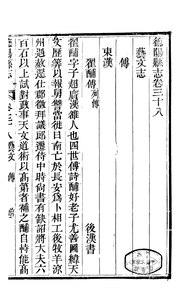 德陽縣志卷三十八
藝文志
傳
東漢
翟酺列傳
後漢書
翟酺字子超廣漢雒人也四世傳詩酺好老子尤善圖緯天
文歷算以報舅讐當徙日南亡於長安為卜相工後牧羊涼
州遇赦還仕郡徵拜議郎遷侍中時尚書有缺詔將大夫六
百石以上試對政事天文道術以高第者補之酺自恃能高